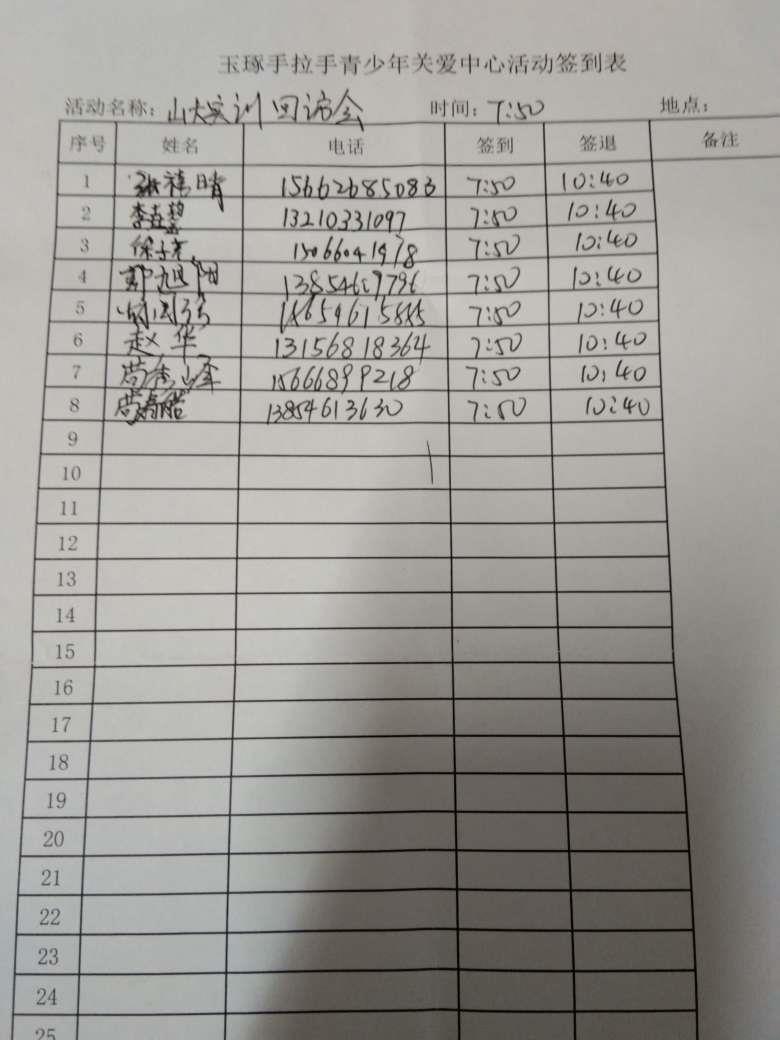 玉琢手拉手青少年关爱中心活动签到表
活动名称: 山大实训回访会 时间: 7:50 地点:
序号 姓名 电话 签到 签退 备注
1 张禧晴 15662685083 7:50 10:40
2 13210331097 7:50 10:40
3 15066041978 7:50 10:40
4 郭旭阳 13854609796 7:50 10:40
5 7:50 10:40
6 赵华 13156818364 7:50 10:40
7 15666899218 7:50 10:40
8 13854613630 7:50 10:40
9
10
11
12
13
14
15
16
17
18
19
20
21
22
23
24
25